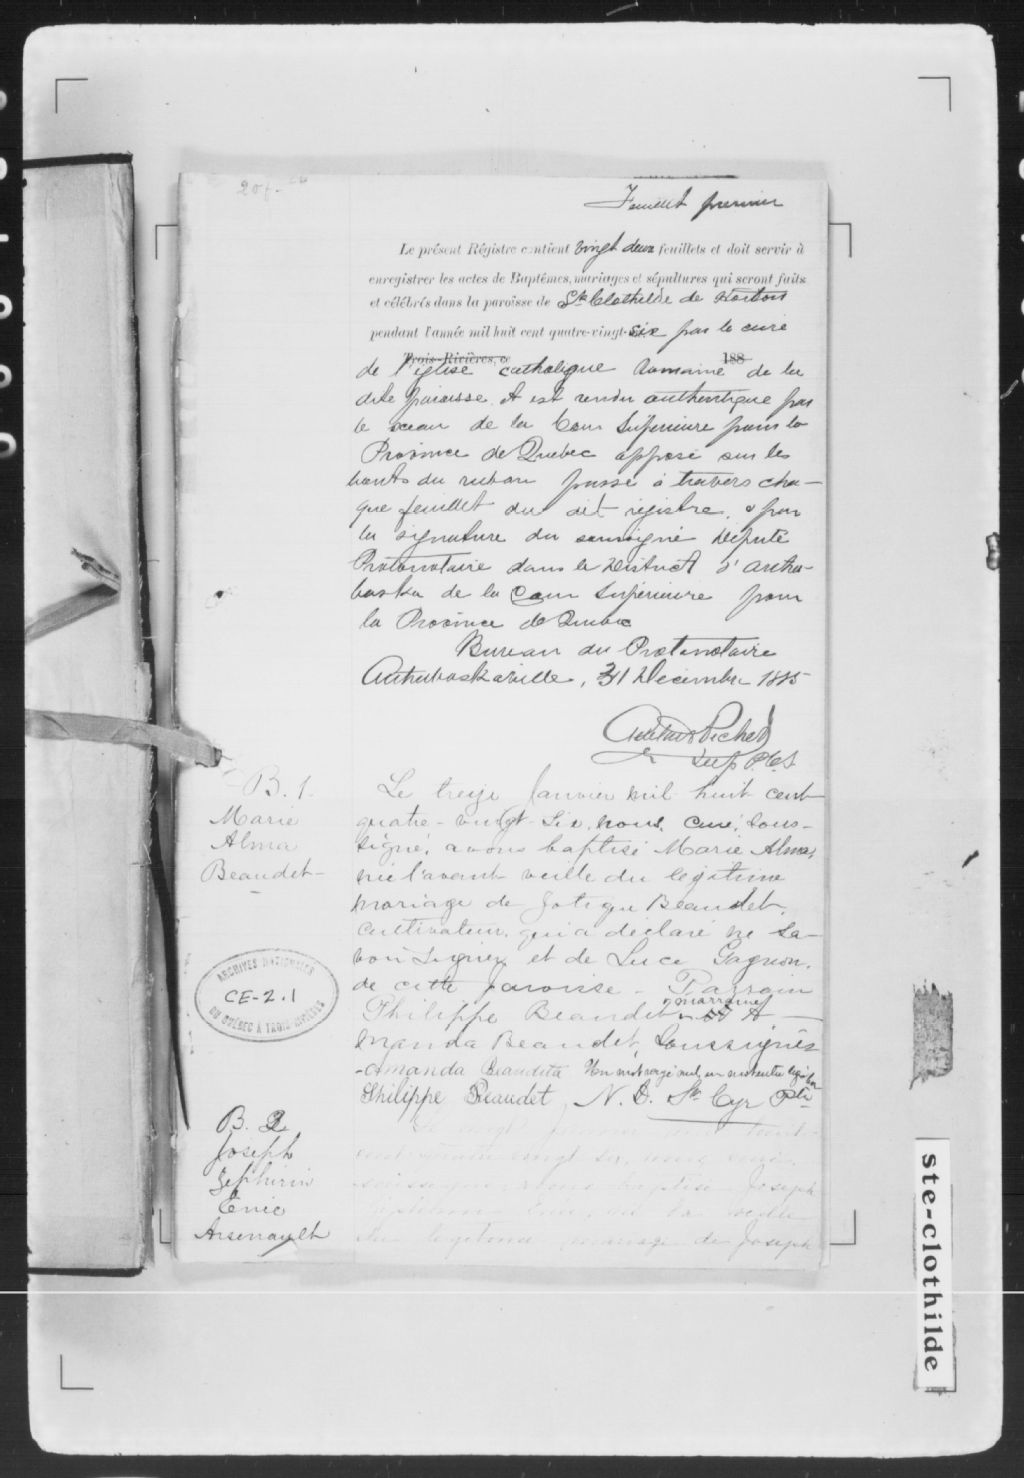 Feuillet premier
Le présent Régistre contient vingt deux feuillets et doit servir à
enregistrer les actes de Baptêmes, mariages et sépultures qui seront faits
et célébrés dans la paroisse de Ste Clothilde de Horton
pendant l'année mil huit cent quatre-vingt-six par le curé
Trois-Rivières, ce 188
de l'église catholique Romaine de la
dite paroisse et est rendu authentique par
le sceau de la Cour Supérieure pour la
Province de Quebec apposé sur les
bouts du ruban passé à travers cha-
que feuillet du dit régistre, & par
la signature du soussigné Député
Protonotaire dans le District d'Artha-
baska de la Cour Supérieure pour
la Province de Quebec
Bureau du Protonotaire
Arthabaskaville, 31 Décembre 1885
Pichet
Dep P.C.S.
B. 1.
Marie
Alma
Beaudet
Le treize Janvier mil huit cent
quatre-vingt-six, nous, curé, sous-
signé, avons baptisé Marie Alma,
née l'avant veille du légitime
mariage de Beaudet,
cultivateur, qui a déclaré ne sa-
voir signer, et de Luce Gagnon,
de cette paroisse - Parrain
Philippe Beaudet marraine A-
manda Beaudet, Soussignés
Amanda Beaudette Un mot rayé nul, un mot entre ligne bon
Philippe Beaudet N. D. St Cyr Ptre
ARCHIVES NATIONALES
CE-2.1
DU QUÉBEC À TROIS-RIVIÈRES
B. 2
Joseph
Zéphirin
Énio
Arsenault
Le vingt janvier mil huit
cent quatre vingt six, nous curé,
soussigné avons baptisé Joseph
Zéphirin né la veille
du légitime mariage de Joseph
ste-clothilde